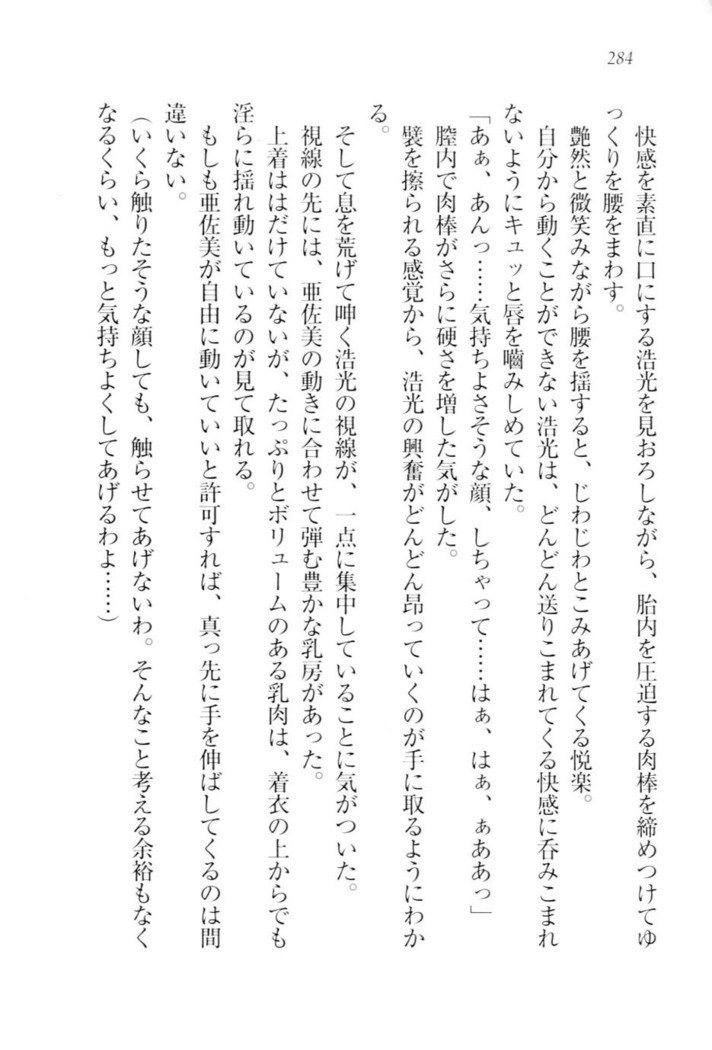 284
快感を素直に口にする浩光を見おろしながら、胎内を圧迫する肉棒を締めつけてゆ
っくりを腰をまわす。
艶然と微笑みながら腰を揺すると、じわじわとこみあげてくる悦楽。
自分から動くことができない浩光は、どんどん送りこまれてくる快感に呑みこまれ
ないようにキュッと唇を嚙みしめていた。
「あぁ、あんっ……気持ちよさそうな顔、しちゃって……はぁ、はぁ、ぁああっ」
膣内で肉棒がさらに硬さを増した気がした。
襞を擦られる感覚から、浩光の興奮がどんどん昂っていくのが手に取るようにわか
る。
そして息を荒げて呻く浩光の視線が、一点に集中していることに気がついた。
視線の先には、亜佐美の動きに合わせて弾む豊かな乳房があった。
上着ははだけていないが、たっぷりとボリュームのある乳肉は、着衣の上からでも
淫らに揺れ動いているのが見て取れる。
もしも亜佐美が自由に動いていいと許可すれば、真っ先に手を伸ばしてくるのは間
違いない。
（いくら触りたそうな顔しても、触らせてあげないわ。そんなこと考える余裕もなく
なるくらい、もっと気持ちよくしてあげるわよ……）